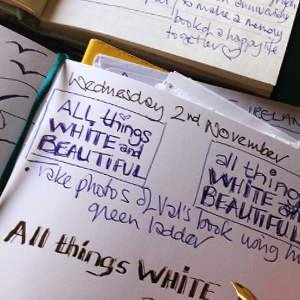 anniversary
to make a memory
book of a happy life
together
IRELAN
Wednesday 2nd November
ALL things
WHITE and
BEAUTIFUL
all things
WHITE and
BEAUTIFUL
• Take photos of Val's book using
green ladder
All things WHITE